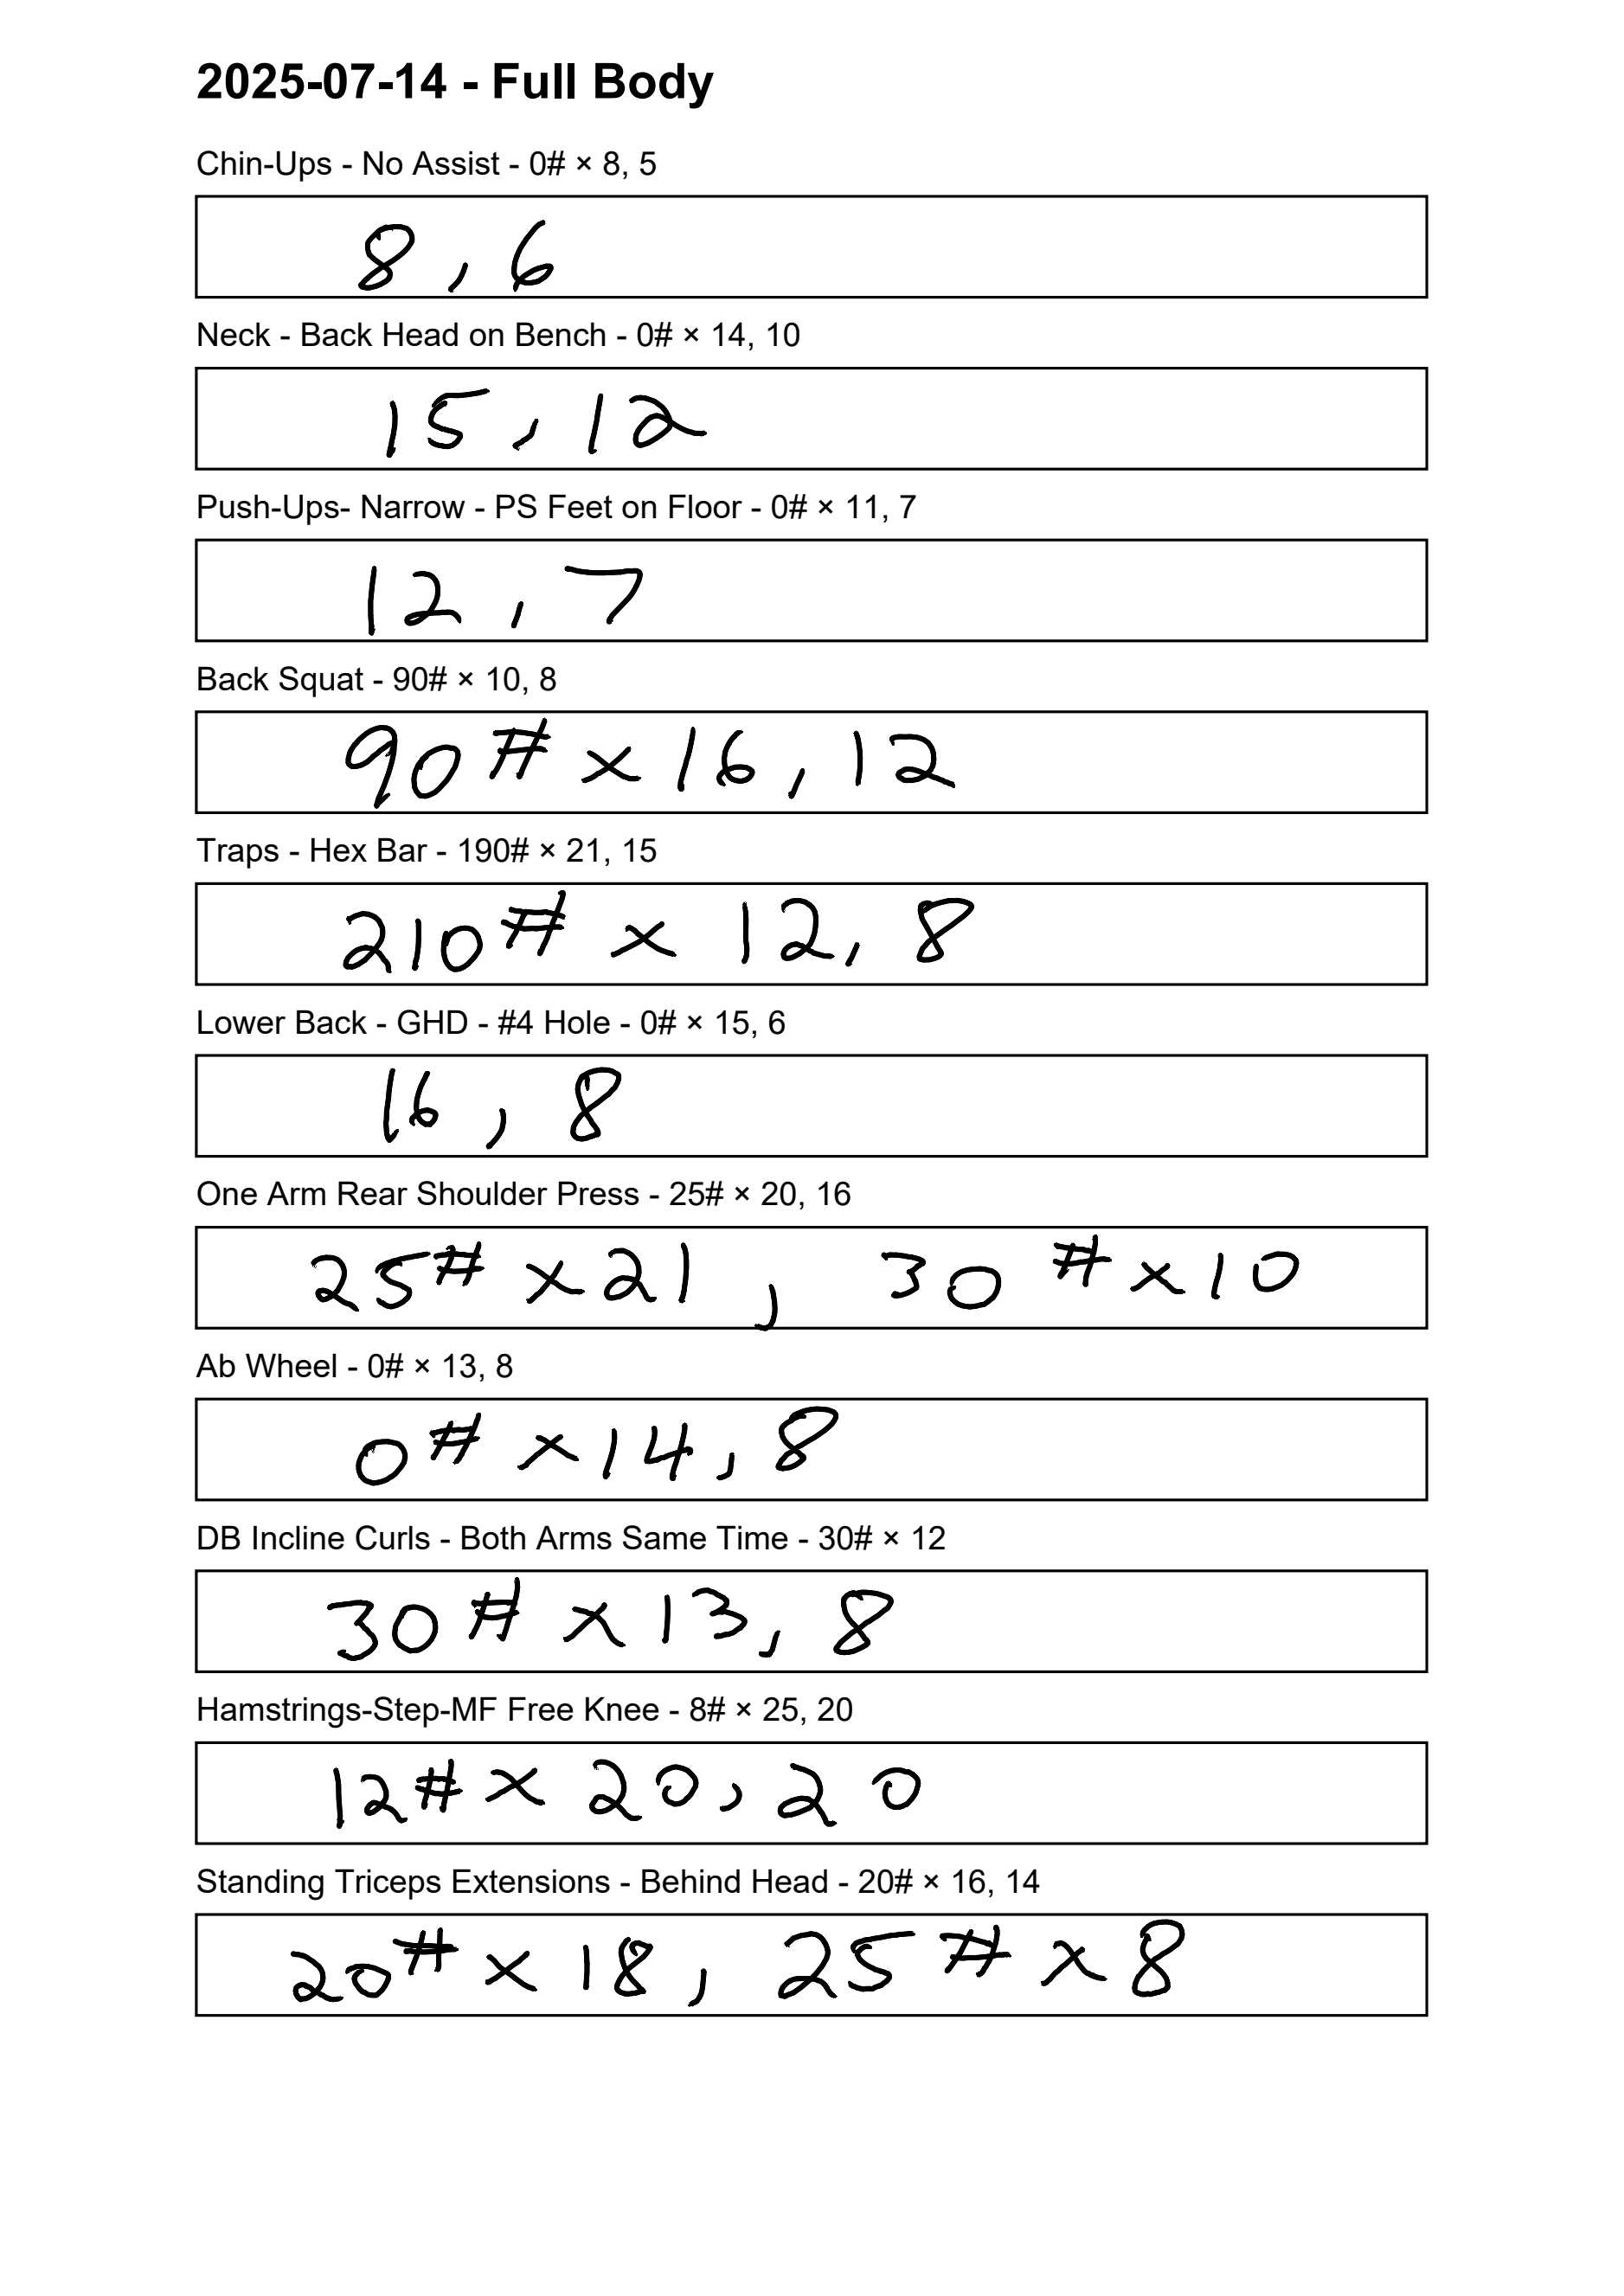 2025-07-14 - Full Body
Chin-Ups - No Assist - 0# × 8, 5
8, 6
Neck - Back Head on Bench - 0# × 14, 10
15, 12
Push-Ups- Narrow - PS Feet on Floor - 0# × 11, 7
12, 7
Back Squat - 90# × 10, 8
90# × 16, 12
Traps - Hex Bar - 190# × 21, 15
210# × 12, 8
Lower Back - GHD - #4 Hole - 0# × 15, 6
16, 8
One Arm Rear Shoulder Press - 25# × 20, 16
25# × 21, 30# × 10
Ab Wheel - 0# × 13, 8
0# × 14, 8
DB Incline Curls - Both Arms Same Time - 30# × 12
30# × 13, 8
Hamstrings-Step-MF Free Knee - 8# × 25, 20
12# × 20, 20
Standing Triceps Extensions - Behind Head - 20# × 16, 14
20# × 18, 25# × 8